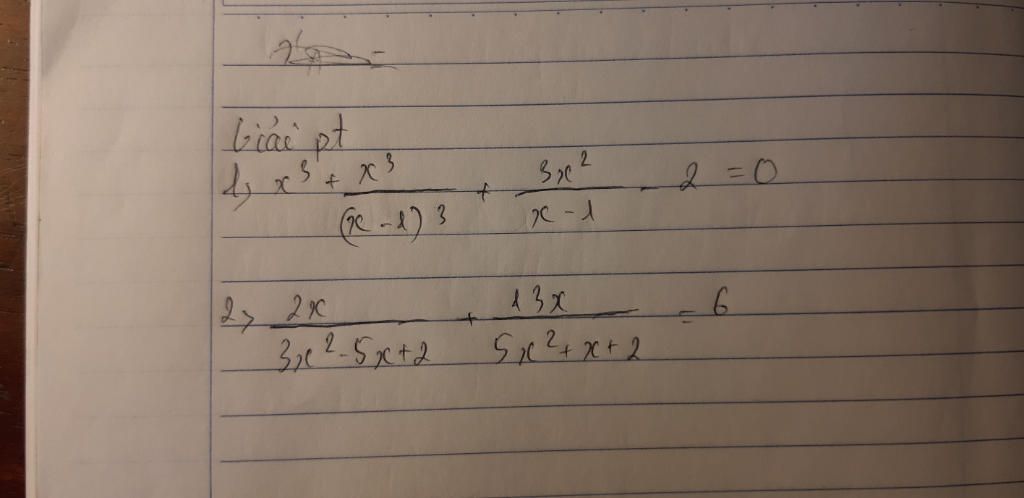 Giải pt
1, x^3 + x^3/(x-1)^3 + 3x^2/(x-1) - 2 = 0
2, 2x/(3x^2-5x+2) + 13x/(5x^2+x+2) = 6